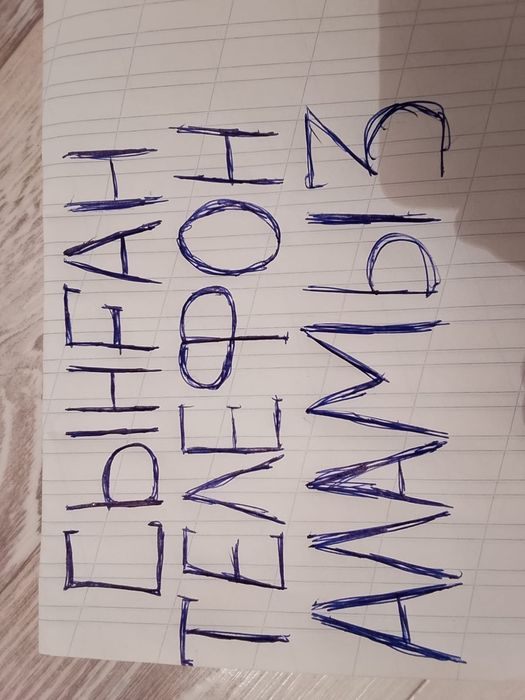 СЫНҒАН
ТЕЛЕФОН
АЛАМЫЗ